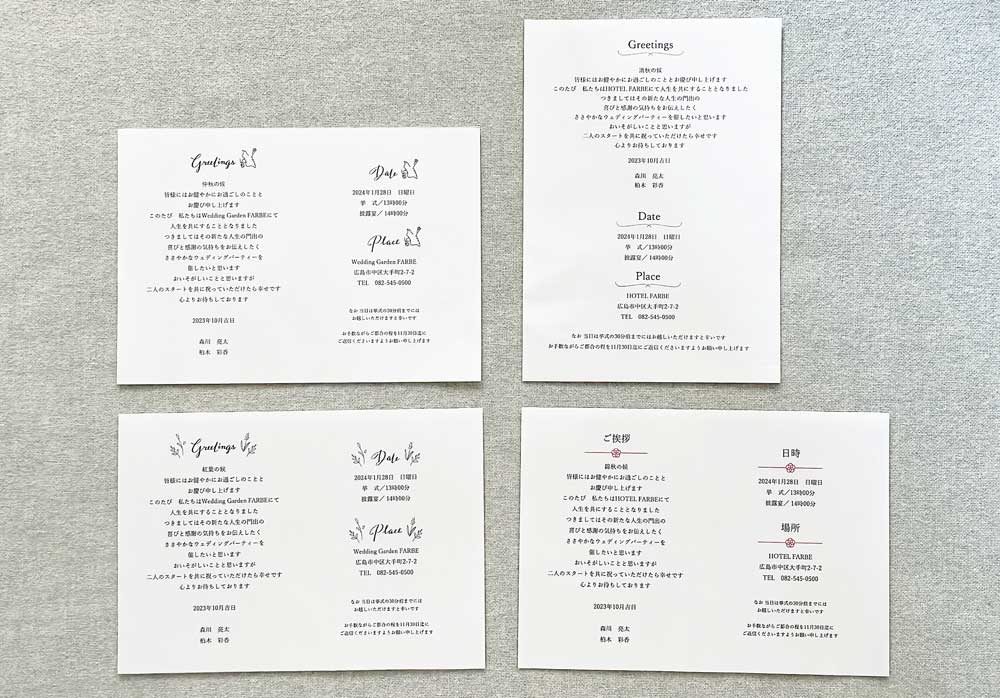 Greetings
仲秋の候
皆様にはお健やかにお過ごしのことと
お慶び申し上げます
このたび　私たちはWedding Garden FARBEにて
人生を共にすることとなりました
つきましてはその新たな人生の門出の
喜びと感謝の気持ちをお伝えしたく
ささやかなウェディングパーティーを
催したいと思います
おいそがしいことと思いますが
二人のスタートを共に祝っていただけたら幸せです
心よりお待ちしております
2023年10月吉日
森川　亮太
柏木　彩香
Date
2024年1月28日　日曜日
挙　式／13時00分
披露宴／14時00分
Place
Wedding Garden FARBE
広島市中区大手町2-7-2
TEL　082-545-0500
なお 当日は挙式の30分前までには
お越しいただけますと幸いです
お手数ながらご都合の程を11月30日迄に
ご返信くださいますようお願い申し上げます
Greetings
清秋の候
皆様にはお健やかにお過ごしのこととお慶び申し上げます
このたび　私たちはHOTEL FARBEにて人生を共にすることとなりました
つきましてはその新たな人生の門出の
喜びと感謝の気持ちをお伝えしたく
ささやかなウェディングパーティーを催したいと思います
おいそがしいことと思いますが
二人のスタートを共に祝っていただけたら幸せです
心よりお待ちしております
2023年10月吉日
森川　亮太
柏木　彩香
Date
2024年1月28日　日曜日
挙　式／13時00分
披露宴／14時00分
Place
HOTEL FARBE
広島市中区大手町2-7-2
TEL　082-545-0500
なお 当日は挙式の30分前までにはお越しいただけますと幸いです
お手数ながらご都合の程を11月30日迄にご返信くださいますようお願い申し上げます
Greetings
紅葉の候
皆様にはお健やかにお過ごしのことと
お慶び申し上げます
このたび　私たちはWedding Garden FARBEにて
人生を共にすることとなりました
つきましてはその新たな人生の門出の
喜びと感謝の気持ちをお伝えしたく
ささやかなウェディングパーティーを
催したいと思います
おいそがしいことと思いますが
二人のスタートを共に祝っていただけたら幸せです
心よりお待ちしております
2023年10月吉日
森川　亮太
柏木　彩香
Date
2024年1月28日　日曜日
挙　式／13時00分
披露宴／14時00分
Place
Wedding Garden FARBE
広島市中区大手町2-7-2
TEL　082-545-0500
なお 当日は挙式の30分前までには
お越しいただけますと幸いです
お手数ながらご都合の程を11月30日迄に
ご返信くださいますようお願い申し上げます
ご挨拶
錦秋の候
皆様にはお健やかにお過ごしのことと
お慶び申し上げます
このたび　私たちはHOTEL FARBEにて
人生を共にすることとなりました
つきましてはその新たな人生の門出の
喜びと感謝の気持ちをお伝えしたく
ささやかなウェディングパーティーを
催したいと思います
おいそがしいことと思いますが
二人のスタートを共に祝っていただけたら幸せです
心よりお待ちしております
2023年10月吉日
森川　亮太
柏木　彩香
日時
2024年1月28日　日曜日
挙　式／13時00分
披露宴／14時00分
場所
HOTEL FARBE
広島市中区大手町2-7-2
TEL　082-545-0500
なお 当日は挙式の30分前までには
お越しいただけますと幸いです
お手数ながらご都合の程を11月30日迄に
ご返信くださいますようお願い申し上げます